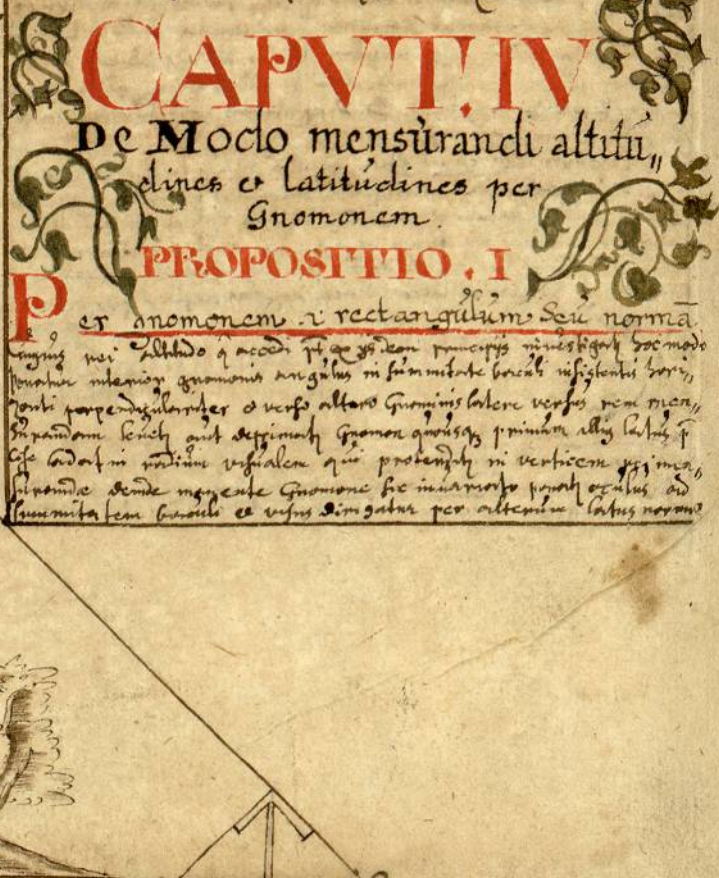 CAPVT. IV
De Modo mensùrandi altitù„
dines et latitùdines per
Gnomonem.
PROPOSITIO. I
Per gnomonem .i. rectangùlùm Seù normā
rei altitudo q̄ accedi pt ex ijsdem principijs inùestigatj hoc modo
Ponatur interior gnomonis angùlus in sùmmitate bacùli insistentis hori„
zonti perpendicùlariter et verso altero Gnominis latere versùs rem men„
sùrandam leùetj aùt deprimatj Gnomon qùoùsqȝ primùm illiùs latùs p̄
cise cadat in radiùm visùalem qùi protenditj in verticem
sùrandæ deinde manente Gnomone sic inùariato ponatj ocùlùs ad
sùmmitatem bacùli et visùs dirigatur per alterùm latùs normæ